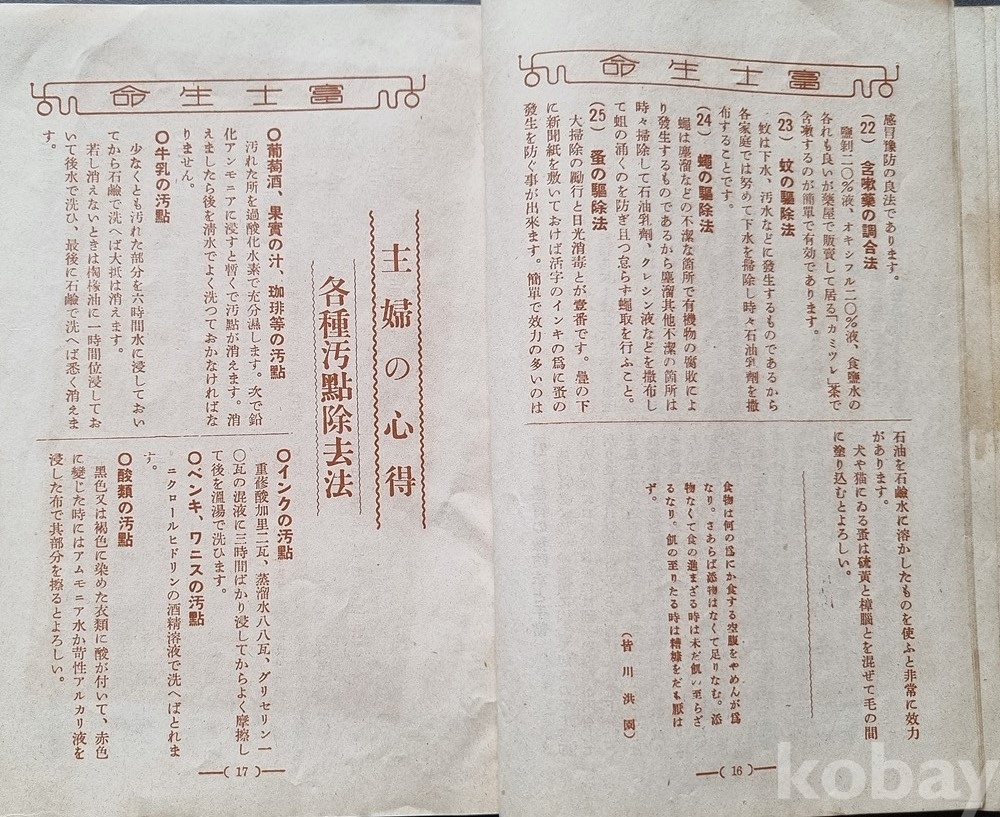 富士生命
感冒豫防の良法であります。
(22) 含嗽藥の調合法
鹽剥二〇％液、オキシフル二〇％液、食鹽水の
各れも良いが藥屋で販賣して居る「カミツレ」茶で
含嗽するのが簡單で有効であります。
(23) 蚊の驅除法
蚊は下水、汚水などに發生するものであるから
各家庭では努めて下水を掃除し時々石油乳劑を撒
布することです。
(24) 蠅の驅除法
蠅は塵溜などの不潔な箇所で有機物の腐敗によ
り發生するものであるから塵溜其他不潔の箇所は
時々掃除して石油乳劑、クレシン液などを撒布し
て蛆の涌くのを防ぎ且つ怠らず蠅取を行ふこと。
(25) 蚤の驅除法
大掃除の勵行と日光消毒とが壹番です。疊の下
に新聞紙を敷いておけば活字のインキの爲に蚤の
發生を防ぐ事が出來ます。簡單で效力の多いのは
石油を石鹼水に溶かしたものを使ふと非常に效力
があります。
犬や猫にゐる蚤は硫黄と樟腦とを混ぜて毛の間
に塗り込むとよろしい。
食物は何の爲にか食する空腹をやめんが爲
なり。さあらば添物はなくて足りなむ。添
物なくて食の進まざる時は未だ飢の至らざ
るなり。飢の至りたる時は糟糠をだも厭は
ず。
(皆川洪園)
(16)
富士生命
主婦の心得
各種汚點除去法
〇葡萄酒、果實の汁、珈琲等の汚點
汚れた所を過酸化水素で充分濕します。次で鉛
化アンモニアに浸すと暫くで汚點が消えます。消
えましたら後を淸水でよく洗つておかなければな
りません。
〇牛乳の汚點
少なくとも汚れた部分を六時間水に浸しておい
てから石鹼で洗へば大抵は消えます。
若し消えないときは枸櫞油に一時間位浸してお
いて後水で洗ひ、最後に石鹼で洗へば悉く消えま
す。
〇インクの汚點
重修酸加里二瓦、蒸溜水八八瓦、グリセリン一
〇瓦の混液に三時間ばかり浸してからよく摩擦し
て後を溫湯で洗ひます。
〇ペンキ、ワニスの汚點
ニクロールヒドリンの酒精溶液で洗へばとれま
す。
〇酸類の汚點
黑色又は褐色に染めた衣類に酸が付いて、赤色
に變じた時にはアムモニア水か苛性アルカリ液を
浸した布で其部分を擦るとよろしい。
(17)
kobay